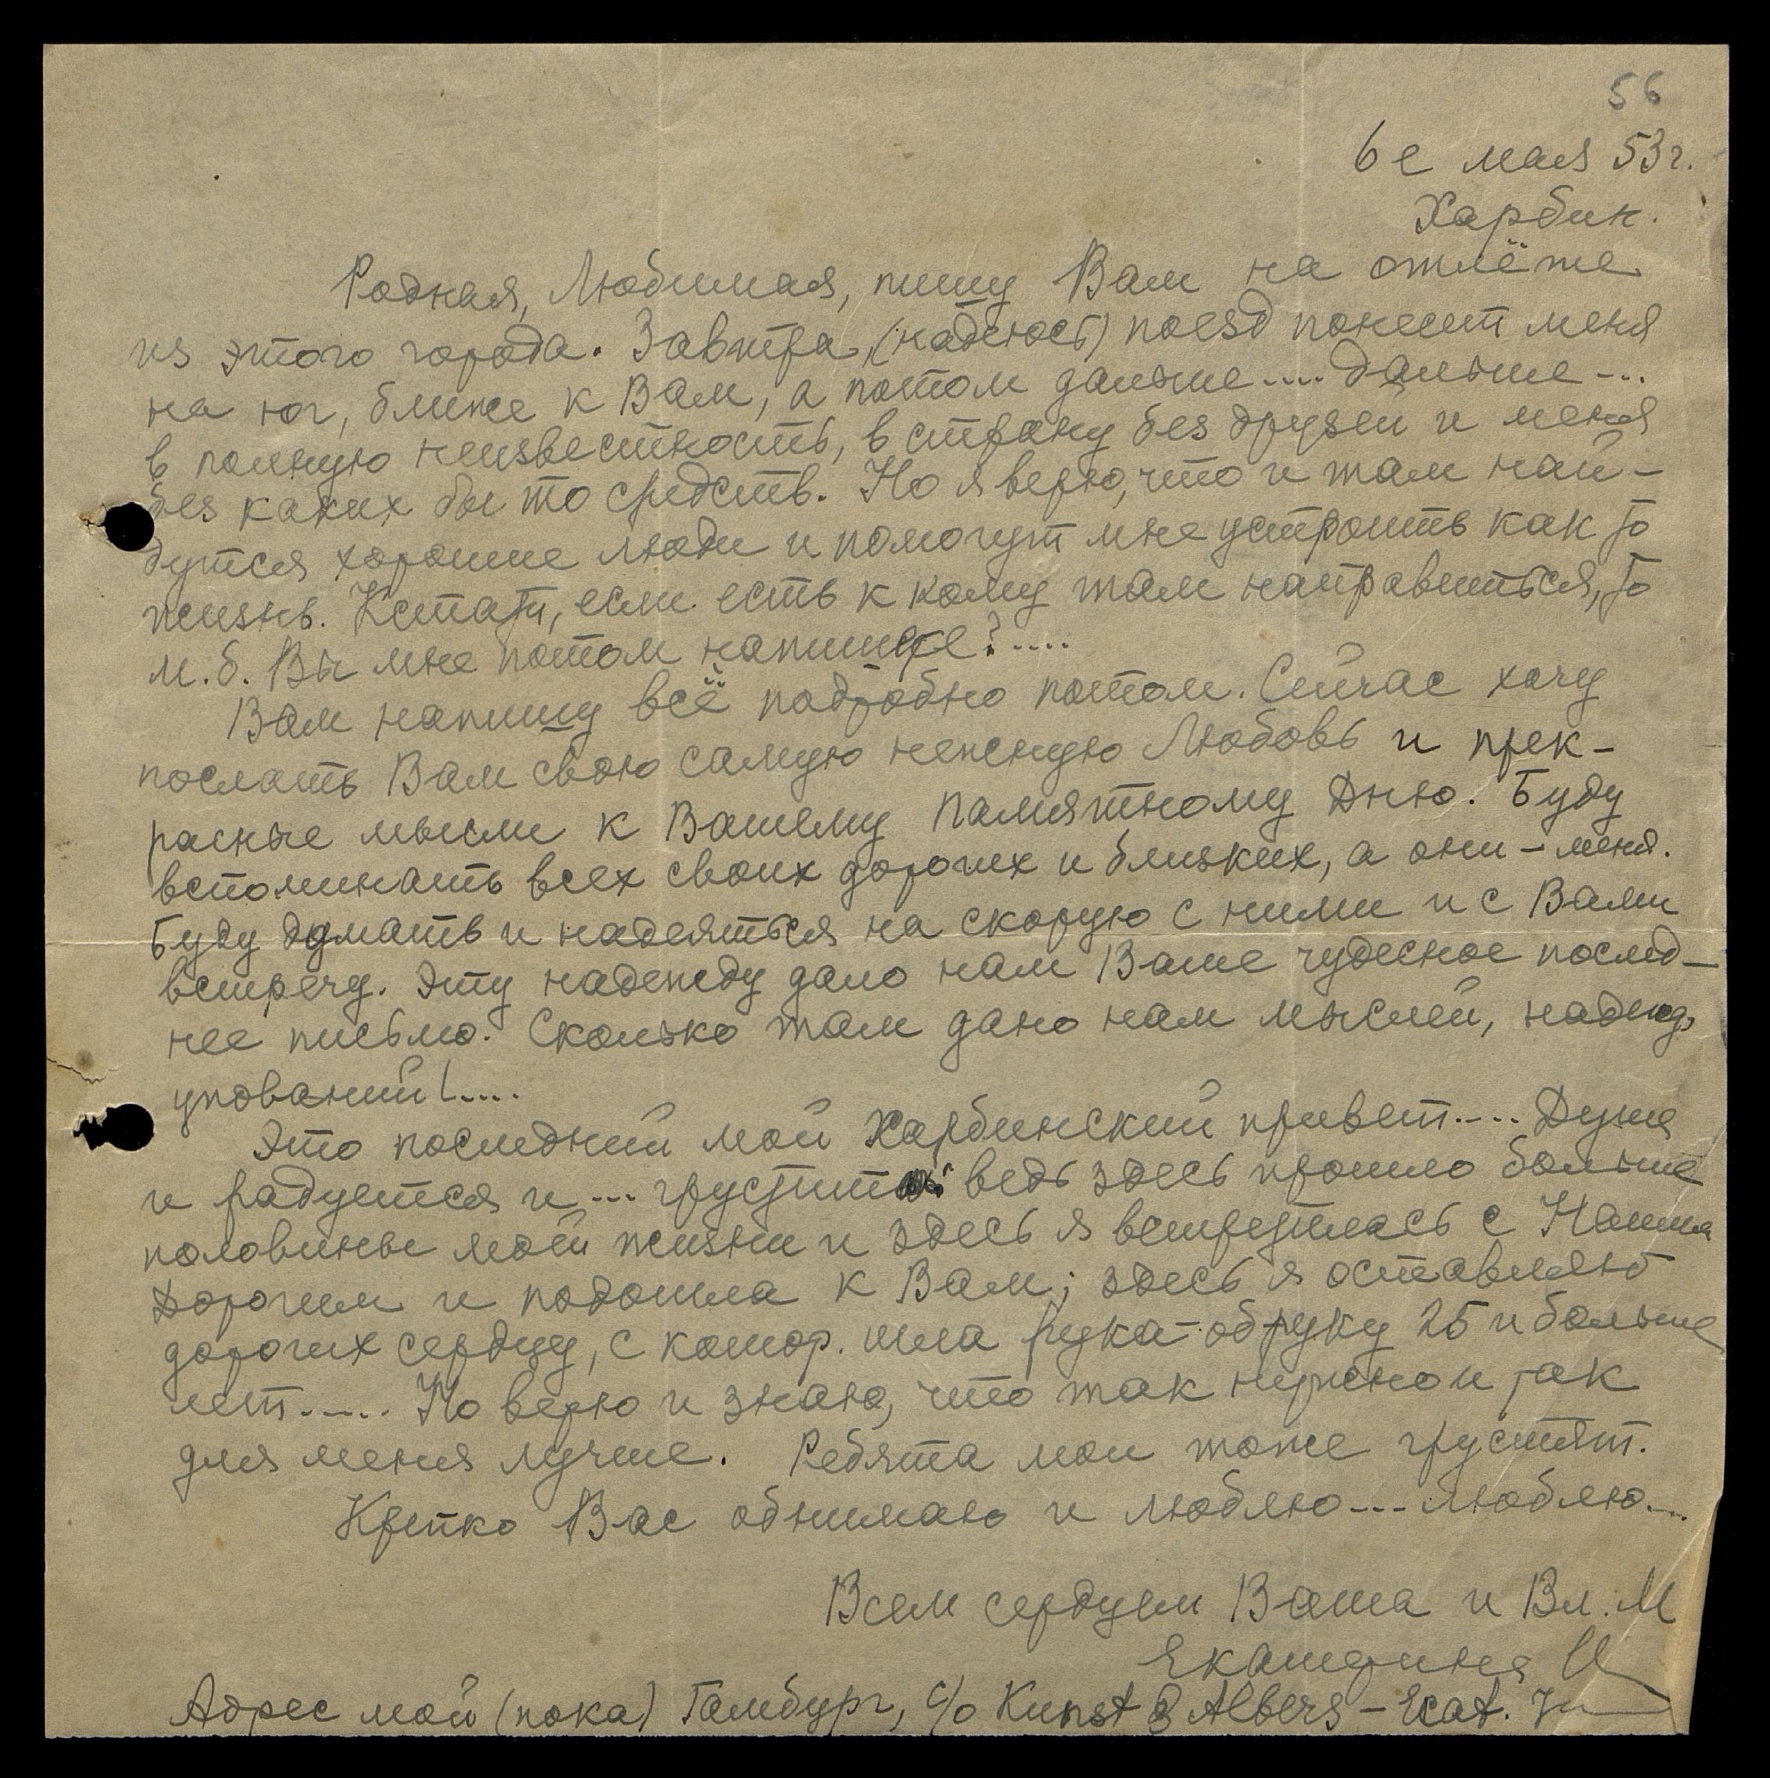 56
6е мая 53г.
Харбин.
Родная, Любимая, пишу Вам на отлёте
из этого города. Завтра, (надеюсь) поезд понесет меня
на юг, ближе к Вам, а потом дальше.... дальше...
в полную неизвестность, в страну без друзей и меня
без каких бы то средств. Но я верю, что и там най-
дутся хорошие люди и помогут мне устроить как то
жизнь. Кстати, если есть к кому там направиться, то
м.б. Вы мне потом напишете?....
Вам напишу всё подробно потом. Сейчас хочу
послать Вам свою самую нежную Любовь и прек-
расные мысли к Вашему Памятному Дню. Буду
вспоминать всех своих дорогих и близких, а они – меня.
Буду думать и надеяться на скорую с ними и с Вами
встречу. Эту надежду дало нам Ваше чудесное послед-
нее письмо. Сколько там дано нам мыслей, надежд,
упований!....
Это последний мой Харбинский привет.... Душа
и радуется и ... грустит ведь здесь прошло больше
половины моей жизни и здесь я встретилась с Нашим
Дорогим и подошла к Вам; здесь я оставляю
дорогих сердцу, с котор. шла рука-об руку 25 и больше
лет..... Но верю и знаю, что так нужно и так
для меня лучше. Ребята мои тоже грустят.
Крепко Вас обнимаю и люблю... люблю...
Всем сердцем Ваша и Вл. М
Екатерина И
Адрес мой (пока) Гамбург, c/o Kunst & Albers – Ecat.